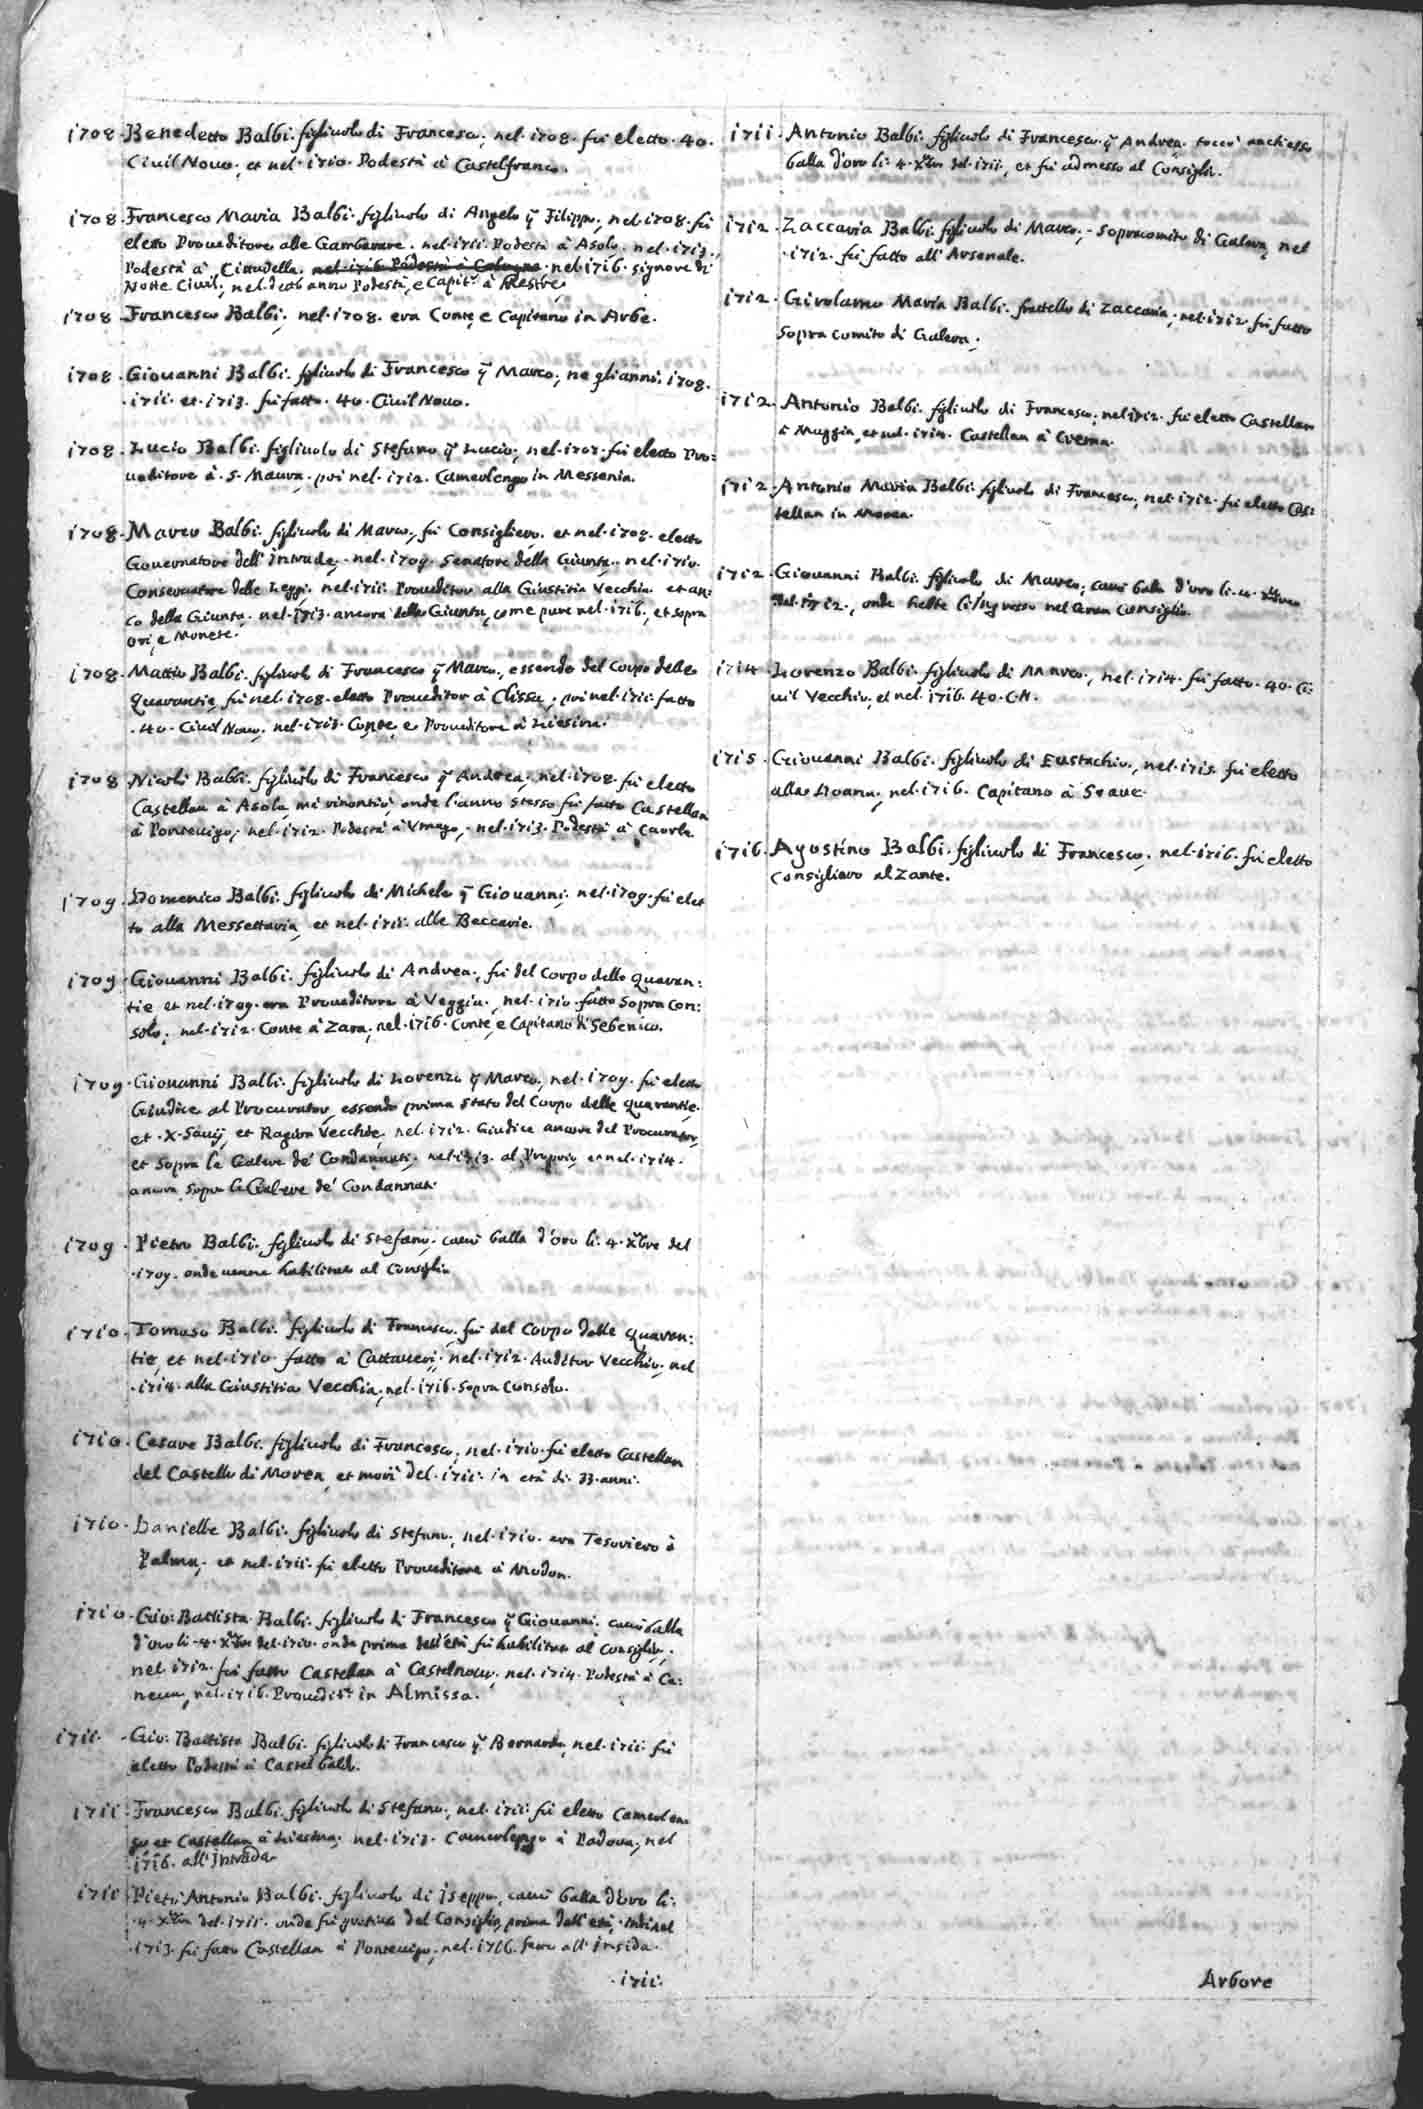 1708. Benedetto Balbi. figliuolo di Francesco; nel. 1708. fù eletto. 40.
Ciuil Nouo, et nel. 1710. Podestà à Castelfranco.
1708. Francesco Maria Balbi. figliuolo di Angelo q̃ Filippo; nel. 1708. fù
eletto Proueditore alle Gambarare. nel. 1711. Podestà à Asolo. nel. 1713.
Podestà à Cittadella. nel. 1716. Podestà à Cologna. nel. 1716. signore di
Notte Ciuil; nel. detto anno Podestà, e Capit.º à Mestre.
1708. Francesco Balbi; nel. 1708. era Conte, e Capitanio in Arbe.
1708. Giouanni Balbi. figliuolo di Francesco q̃ Marco; ne gli anni. 1708.
.1711. et. 1713. fù fatto. 40. Ciuil Nouo.
1708. Lucio Balbi. figliuolo di Stefano q̃ Lucio; nel. 1708. fù eletto Pro:
ueditore à. S. Maura. poi nel. 1712. Camerlengo in Messenia.
1708. Marco Balbi. figliuolo di Marco, fù Consigliero. et nel. 1708. eletto
Gouernatore dell'Intrade. nel. 1709. Senatore della Giunta. nel. 1710.
Conseruatore delle Leggi. nel. 1711. Proueditor alla Giustitia Vecchia. et an:
co della Giunta. nel. 1713. ancora della Giunta, come pure nel. 1716, et sopra
ori, e Monete.
1708. Mattio Balbi. figliuolo di Francesco q̃ Marco, essendo del Corpo delle
Quarantie, fù nel. 1708. eletto Proueditor à Clissa; poi nel. 1711. fatto
.40. Ciuil Nouo; nel. 1713. Conte, e Proueditore à Liesina.
1708 Nicolò Balbi. figliuolo di Francesco q̃ Andrea; nel. 1708. fù eletto
Castellan à Asola, mà rinontiò, onde l'anno stesso fù fatto Castellan
à Ponteuigo; nel. 1712. Podestà à Vmago; nel. 1713. Podestà à Caorle.
1709. Domenico Balbi. figliuolo di Michele q̃ Giouanni; nel. 1709. fù elet
to alla Messettaria, et nel. 1711. alle Beccarie.
1709. Giouanni Balbi. figliuolo di Andrea; fù del Corpo delle Quaran:
tie et nel. 1709. era Proueditore à Veggia; nel. 1710. fatto Sopra Con:
solo; nel. 1712. Conte à Zara, nel. 1716. Conte, e Capitano di Sebenico.
1709. Giouanni Balbi. figliuolo di Lorenzo q̃ Marco; nel. 1709. fù eletto
Giudice al Procurator, essendo prima stato del Corpo delle Quarantie.
et. X. Sauij, et Ragion Vecchie, nel. 1712. Giudice ancora del Procurator,
et Sopra le Galere de' Condannati; nel. 1713. al Proprio, et nel. 1714.
ancora Sopra le Galere de' Condannati.
1709. Pietro Balbi. figliuolo di Stefano; cauò balla d'oro li. 4. Xbre del
.1709. onde uenne habilitato al Consiglio.
1710. Tomaso Balbi. figliuolo di Francesco; fù del Corpo delle Quaran:
tie, et nel. 1710. fatto à Cattaueri; nel. 1712. Auditor Vecchio; nel
.1714. alla Giustitia Vecchia; nel. 1716. Sopra Consolo.
1710. Cesare Balbi. figliuolo di Francesco; nel. 1710. fù eletto Castellan
del Castello di Morea, et morì del. 1711. in età di. 33. anni.
1710. Danielle Balbi. figliuolo di Stefano; nel. 1710. era Tesoriero à
Palma; et nel. 1711. fù eletto Proueditore à Modon.
1710. Gio: Battista Balbi. figliuolo di Francesco q̃ Giouanni. cauò balla
d'oro li. 4. Xbre del. 1710. onde prima dell'età fù habilitato al Consiglio;
nel. 1712. fù fatto Castellan à Castelnouo; nel. 1714. Podestà à Ca:
neua; nel. 1716. Proueditr in Almissa.
1711. Gio: Battista Balbi. figliuolo di Francesco q̃ Bernardo; nel. 1711. fù
eletto Podestà à Castelbaldo.
1711. Francesco Balbi. figliuolo di Stefano; nel. 1711. fù eletto Camerlen
go et Castellan à Liesina; nel. 1713. Camerlengo à Padoua; nel
.1716. all'Intrada.
1711 Pietr'Antonio Balbi. figliuolo di Iseppo; cauò balla d'oro li.
.4. Xbre del. 1711. onde fù del Consiglio prima dell'età, indi nel
.1713. fù fatto Castellan à Ponteuigo; nel. 1716. all' Insida.
.1711.
1711. Antonio Balbi. figliuolo di Francesco q̃ Andrea. toccò anch'esso
balla d'oro li. 4. Xbre del. 1711, et fù admesso al Consiglio.
1712. Zaccaria Balbi. figliuolo di Marco; Sopracomito di Galera, nel
.1712. fù fatto all'Arsenale.
1712. Girolamo Maria Balbi. fratello di Zaccaria; nel. 1712 fù fatto
Sopra comito di Galera;
1712. Antonio Balbi. figliuolo di Francesco; nel. 1712. fù eletto Castellan
à Muggia, et nel. 1714. Castellan à Crema.
1712. Antonio Maria Balbi. figliuolo di Francesco; nel. 1712. fù eletto Cas:
tellan in Morea.
1712. Giouanni Balbi. figliuolo di Marco; cauò balla d'oro li. 4. Xbre
del. 1712., onde hebbe l'ingresso nel Gran Consiglio.
1714. Lorenzo Balbi. figliuolo di Marco; nel. 1714. fù fatto. 40. Ci:
uil Vecchio, et nel. 1716. 40. C.N.
1715. Giouanni Balbi. figliuolo di Eustachio; nel. 1715. fù eletto
alla Doana; nel. 1716. Capitano à Soaue.
1716. Agostino Balbi. figliuolo di Francesco; nel. 1716. fù eletto
Consigliero al Zante.
Arbore